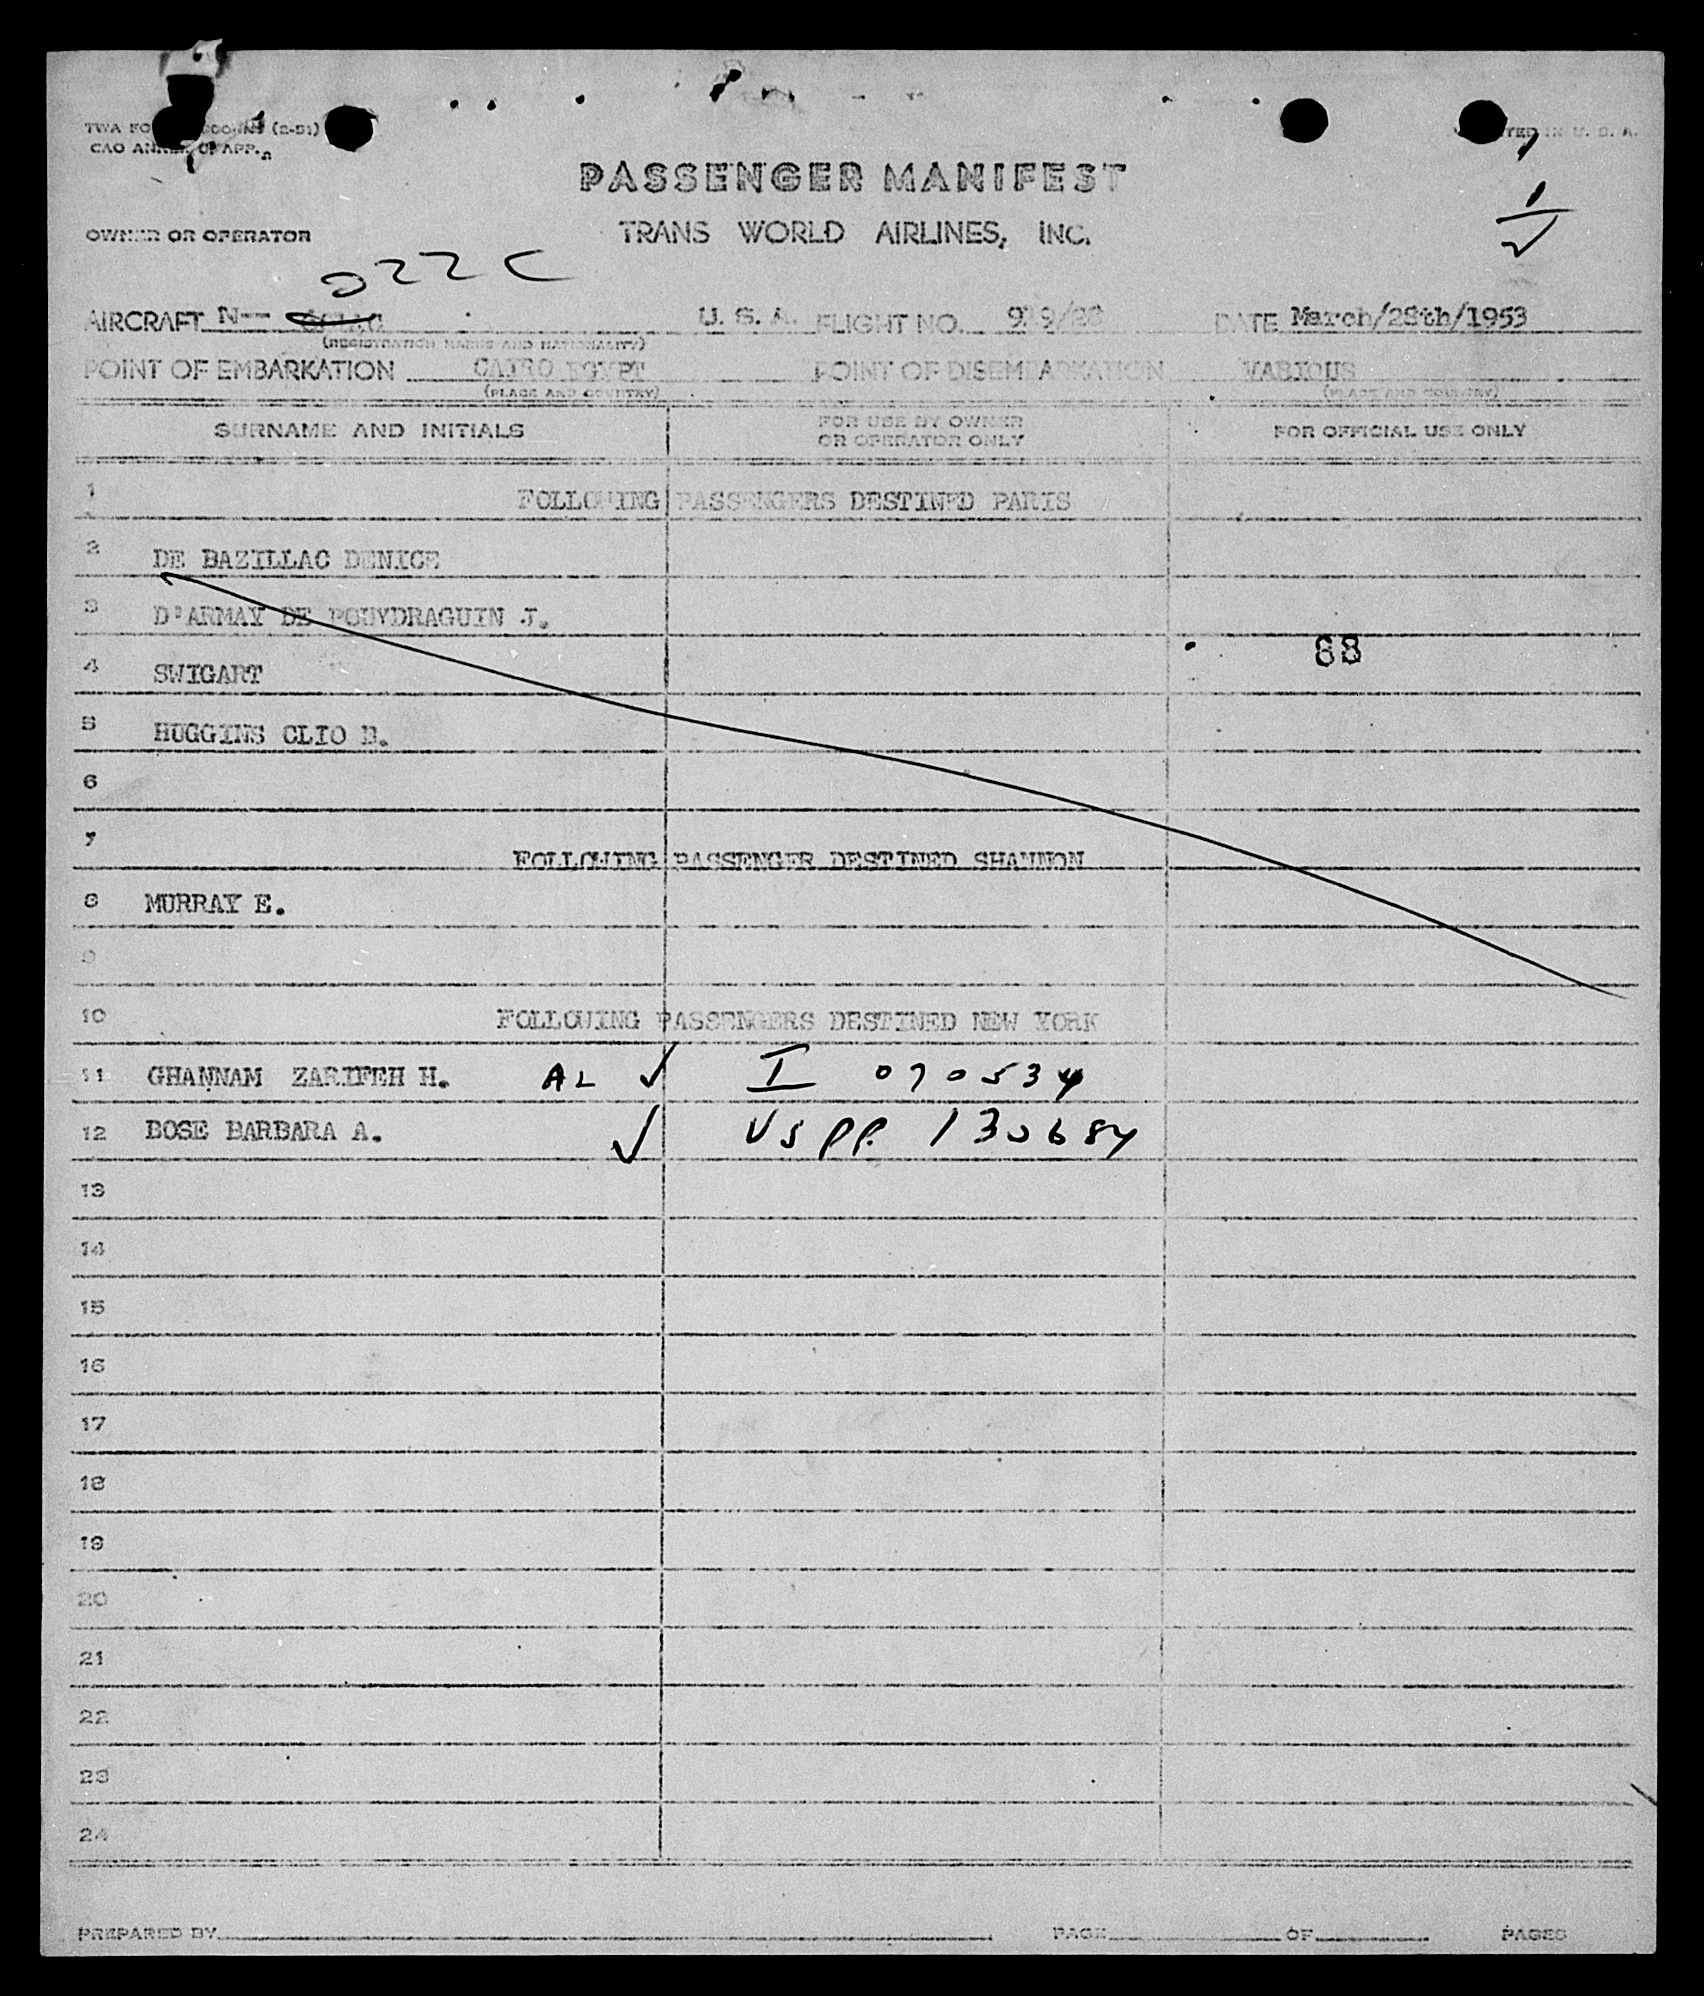 TWA FO (2-51)
CAO APP.
U. S. A.
PASSENGER MANIFEST
OWNER OR OPERATOR TRANS WORLD AIRLINES, INC.
022C
AIRCRAFT N-- U. S. A. FLIGHT NO. 919/28 DATE March/28th/1953
(REGISTRATION MARKS AND NATIONALITY)
POINT OF EMBARKATION CAIRO EGYPT POINT OF DISEMBARKATION VARIOUS
(PLACE AND COUNTRY) (PLACE AND COUNTRY)
SURNAME AND INITIALS FOR USE BY OWNER OR OPERATOR ONLY FOR OFFICIAL USE ONLY
1 FOLLOWING PASSENGERS DESTINED PARIS
2 DE BAZILLAC DENICE
3 D'ARMAY DE POUYDRAGUIN J.
68
4 SWIGART
5 HUGGINS CLIO D.
6
7 FOLLOWING PASSENGER DESTINED SHANNON
8 MURRAY E.
9
10 FOLLOWING PASSENGERS DESTINED NEW YORK
11 GHANNAM ZARIFEH H. AL ✓ I 070534
12 BOSE BARBARA A. ✓ US PP. 130684
13
14
15
16
17
18
19
20
21
22
23
24
PREPARED BY PAGE OF PAGES